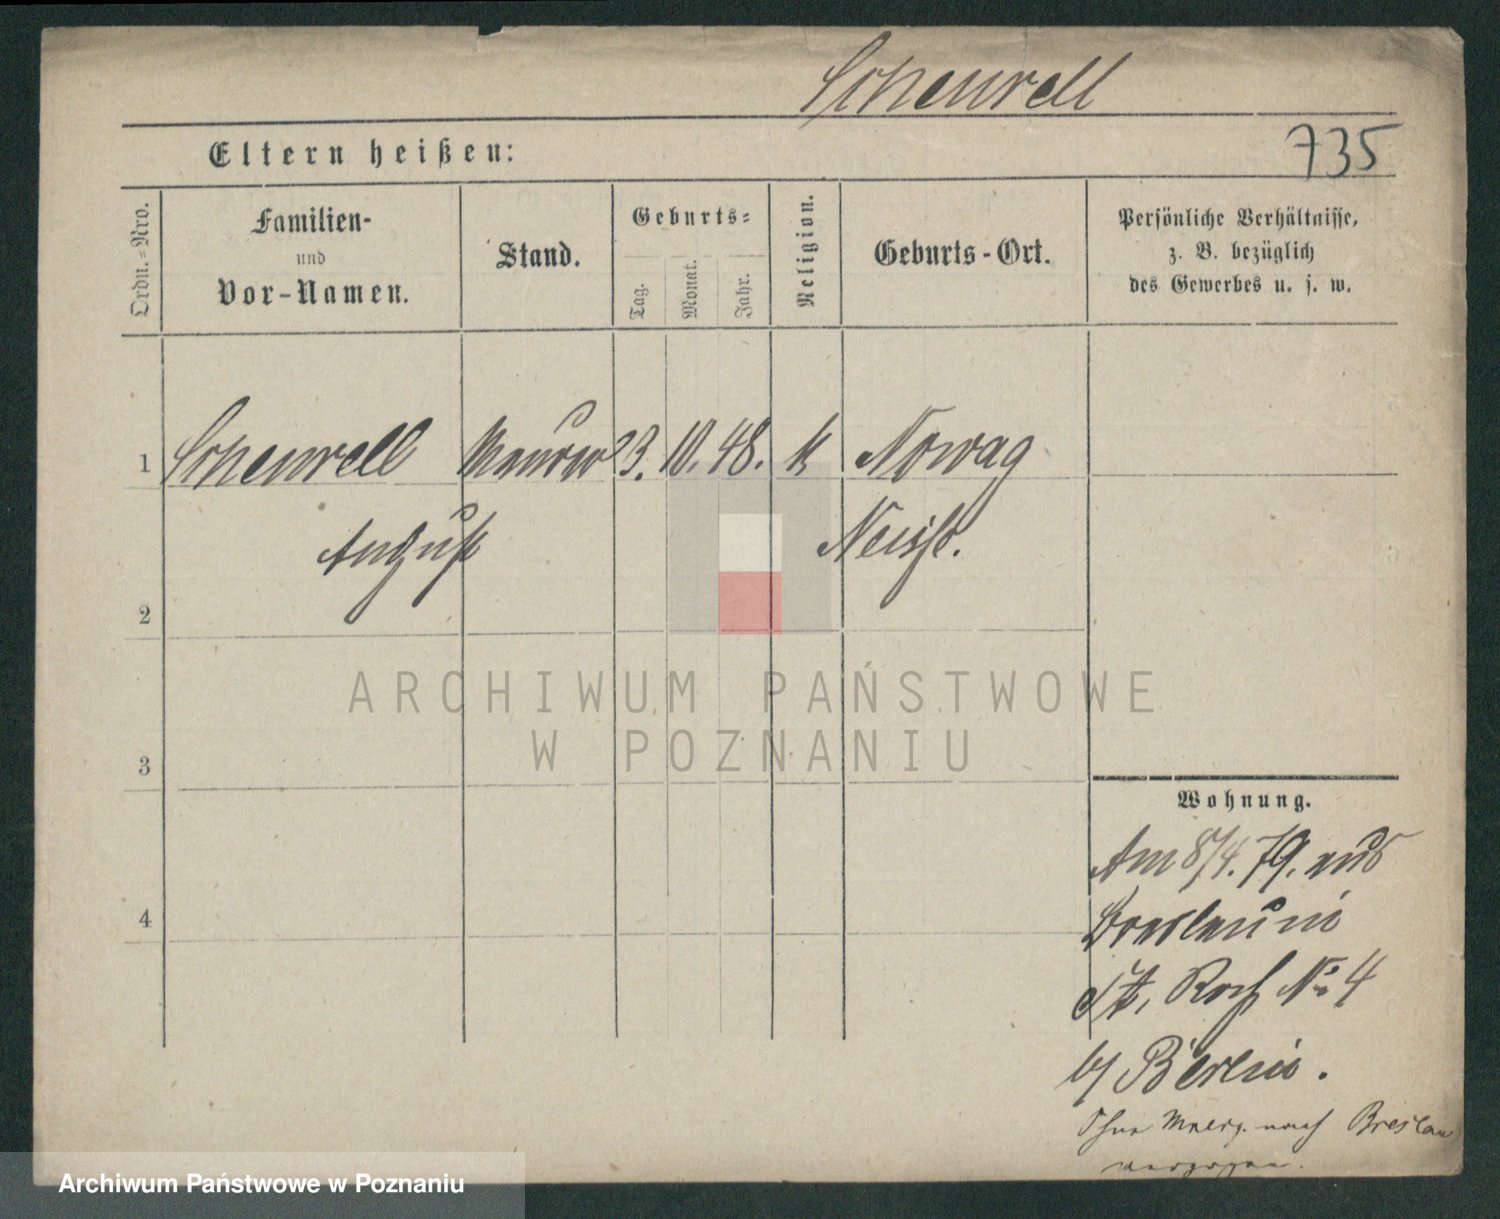 Schenrell
735
Eltern heißen:
Ordn.-Nro.
Familien-
und
Vor-Namen.
Stand.
Geburts-
Tag.
Monat.
Jahr.
Religion.
Geburts-Ort.
Persönliche Verhältnisse,
z. B. bezüglich
des Gewerbes u. s. w.
1 Schenrell Maurer 23. 10. 48. k Nowag
August Neisse.
2
3
4
ARCHIWUM PAŃSTWOWE
W POZNANIU
Wohnung.
Am 8/4. 79. aus
Breslau in
St. Roch No 4
b/ Berlin.
Ohne Meldg. nach Breslau
verzogen.
Archiwum Państwowe w Poznaniu